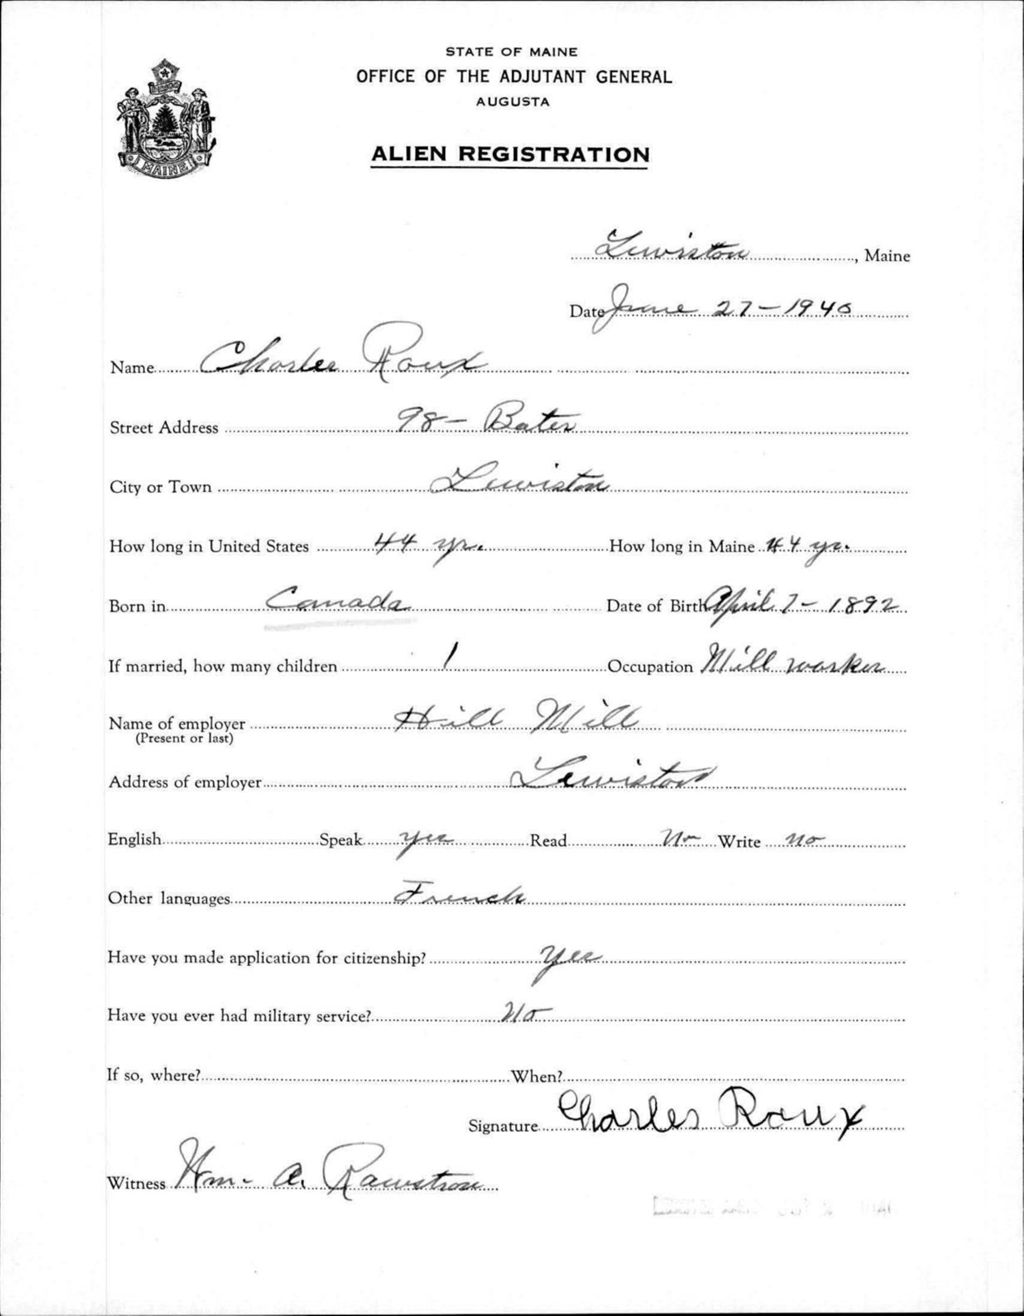 STATE OF MAINE
OFFICE OF THE ADJUTANT GENERAL
AUGUSTA
ALIEN REGISTRATION
MAINE
Lewiston, Maine
Date June 27-1940
Name Charles Roux
Street Address 98- Bates
City or Town Lewiston
How long in United States 44 yr. How long in Maine 44 yr.
Born in Canada Date of Birth April 7- 1892
If married, how many children 1 Occupation Mill worker
Name of employer Hill Mill
(Present or last)
Address of employer Lewiston
English Speak yes Read No Write no
Other languages French
Have you made application for citizenship? Yes
Have you ever had military service? No
If so, where? When?
Signature Charles Roux
Witness Wm. A. Rawstron